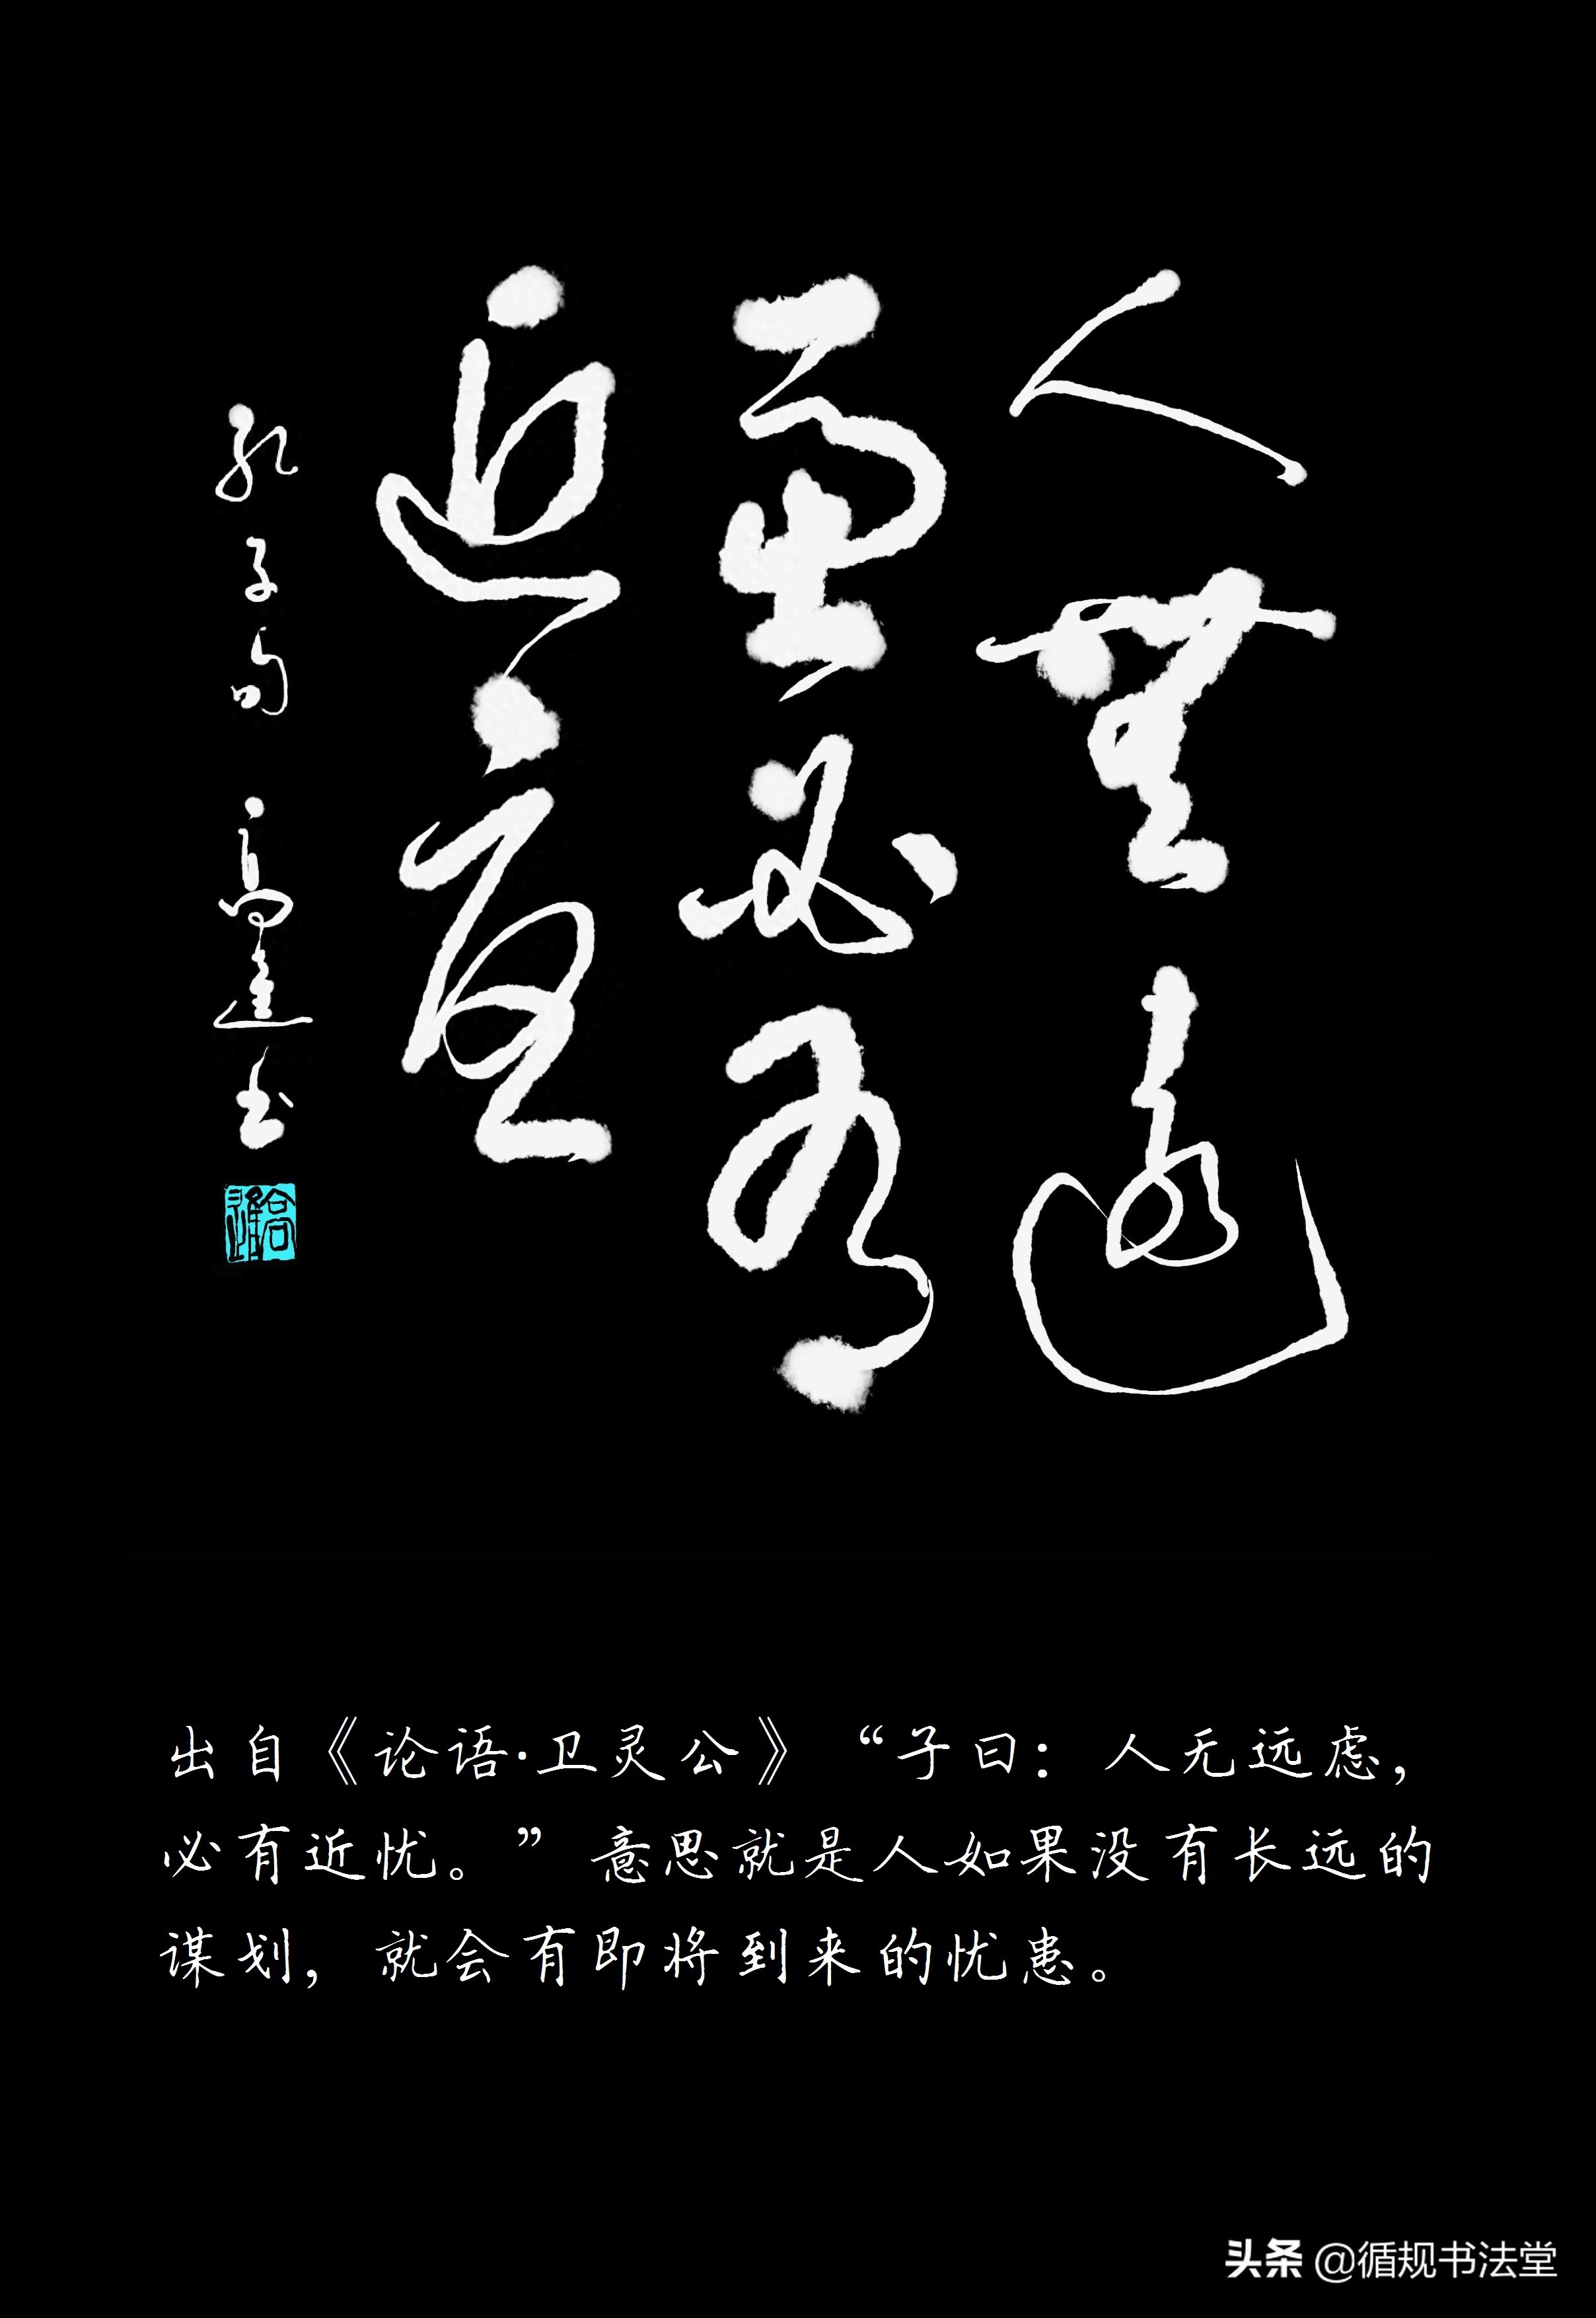 人無遠
慮必有
近憂
孔子句 高進書
出自《论语·卫灵公》“子曰：人无远虑，
必有近忧。”意思就是人如果没有长远的
谋划，就会有即将到来的忧患。
头条 @循规书法堂